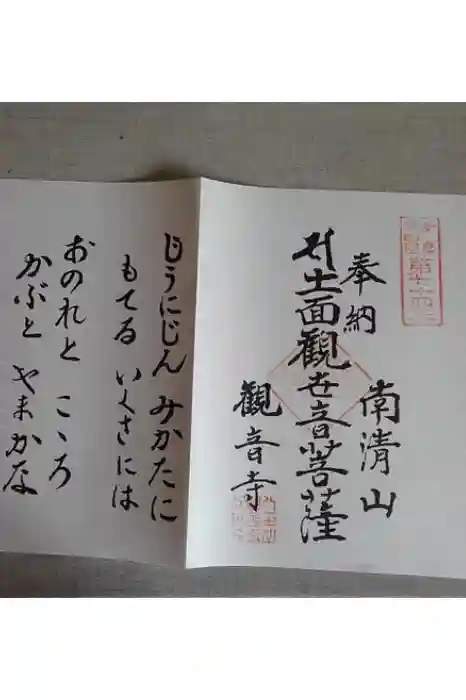 第七十四
南清山
奉納
十一面觀世音菩薩
觀音寺
じうにじん みかたに
もてる いくさには
おのれと こゝろ
かぶと やまかな